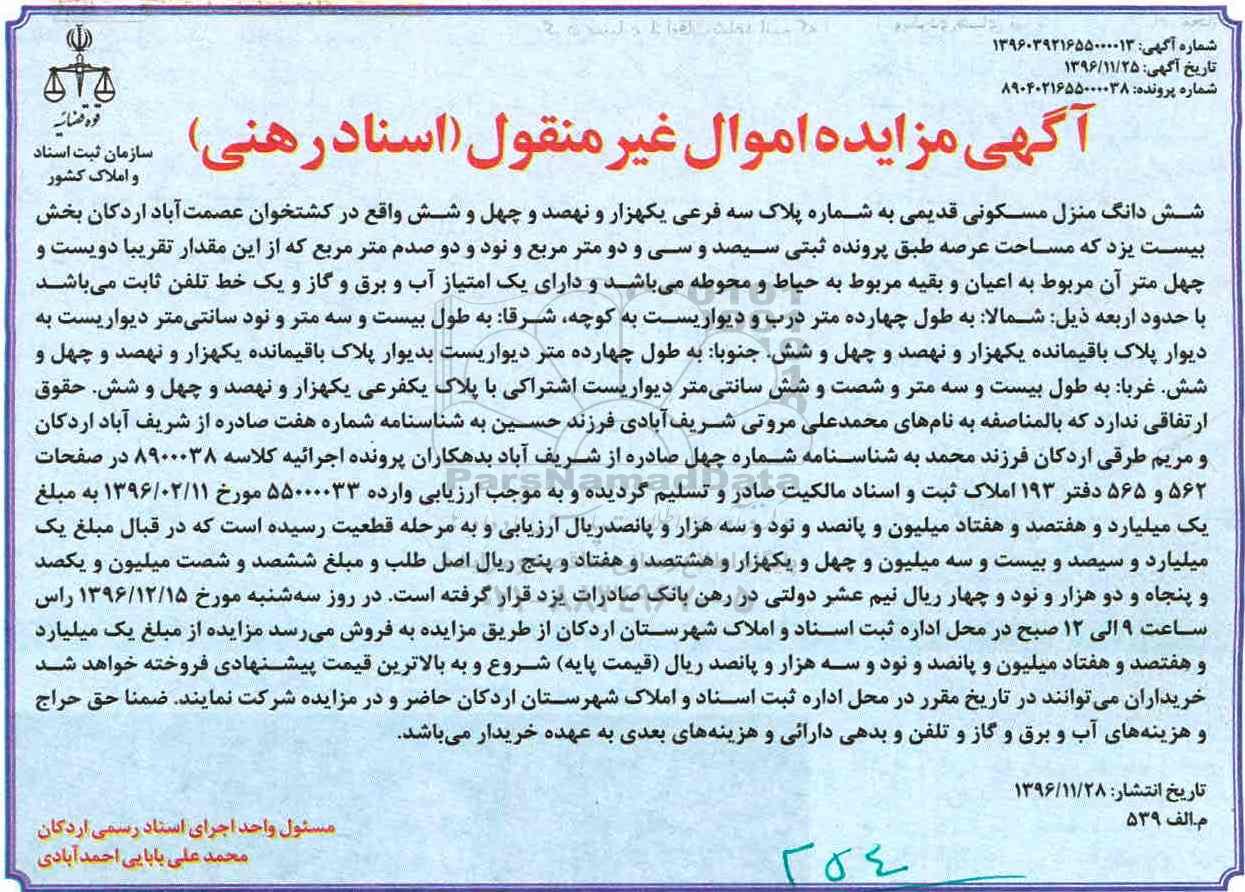 شماره آگهی: ۱۳۹۶۰۳۹۲۱۶۵۵۰۰۰۰۱۳
تاریخ آگهی: ۱۳۹۶/۱۱/۲۵
شماره پرونده: ۸۹۰۴۰۲۱۶۵۵۰۰۰۰۳۸
قوه قضائیه
سازمان ثبت اسناد
و املاک کشور
آگهی مزایده اموال غیر منقول (اسناد رهنی)
شش دانگ منزل مسکونی قدیمی به شماره پلاک سه فرعی یکهزار و نهصد و چهل و شش واقع در کشتخوان عصمت‌آباد اردکان بخش
بیست یزد که مساحت عرصه طبق پرونده ثبتی سیصد و سی و دو متر مربع و نود و دو صدم متر مربع که از این مقدار تقریبا دویست و
چهل متر آن مربوط به اعیان و بقیه مربوط به حیاط و محوطه می‌باشد و دارای یک امتیاز آب و برق و گاز و یک خط تلفن ثابت می‌باشد
با حدود اربعه ذیل: شمالا: به طول چهارده متر درب و دیواریست به کوچه، شرقا: به طول بیست و سه متر و نود سانتی‌متر دیواریست به
دیوار پلاک باقیمانده یکهزار و نهصد و چهل و شش. جنوبا: به طول چهارده متر دیواریست بدیوار پلاک باقیمانده یکهزار و نهصد و چهل و
شش. غربا: به طول بیست و سه متر و شصت و شش سانتی‌متر دیواریست اشتراکی با پلاک یکفرعی یکهزار و نهصد و چهل و شش. حقوق
ارتفاقی ندارد که بالمناصفه به نام‌های محمدعلی مروتی شریف‌آبادی فرزند حسین به شناسنامه شماره هفت صادره از شریف آباد اردکان
و مریم طرقی اردکان فرزند محمد به شناسنامه شماره چهل صادره از شریف آباد بدهکاران پرونده اجرائیه کلاسه ۸۹۰۰۰۳۸ در صفحات
۵۶۲ و ۵۶۵ دفتر ۱۹۳ املاک ثبت و اسناد مالکیت صادر و تسلیم گردیده و به موجب ارزیابی وارده ۵۵۰۰۰۰۳۳ مورخ ۱۳۹۶/۰۲/۱۱ به مبلغ
یک میلیارد و هفتصد و هفتاد میلیون و پانصد و نود و سه هزار و پانصدریال ارزیابی و به مرحله قطعیت رسیده است که در قبال مبلغ یک
میلیارد و سیصد و بیست و سه میلیون و چهل و یکهزار و هشتصد و هفتاد و پنج ریال اصل طلب و مبلغ ششصد و شصت میلیون و یکصد
و پنجاه و دو هزار و نود و چهار ریال نیم عشر دولتی در رهن بانک صادرات یزد قرار گرفته است. در روز سه‌شنبه مورخ ۱۳۹۶/۱۲/۱۵ راس
ساعت ۹ الی ۱۲ صبح در محل اداره ثبت اسناد و املاک شهرستان اردکان از طریق مزایده به فروش می‌رسد مزایده از مبلغ یک میلیارد
و هفتصد و هفتاد میلیون و پانصد و نود و سه هزار و پانصد ریال (قیمت پایه) شروع و به بالاترین قیمت پیشنهادی فروخته خواهد شد
خریداران می‌توانند در تاریخ مقرر در محل اداره ثبت اسناد و املاک شهرستان اردکان حاضر و در مزایده شرکت نمایند. ضمنا حق حراج
و هزینه‌های آب و برق و گاز و تلفن و بدهی دارائی و هزینه‌های بعدی به عهده خریدار می‌باشد.
ParsNamadData
تاریخ انتشار: ۱۳۹۶/۱۱/۲۸
م.الف ۵۳۹
مسئول واحد اجرای اسناد رسمی اردکان
محمد علی بابایی احمدآبادی
۲۵۴